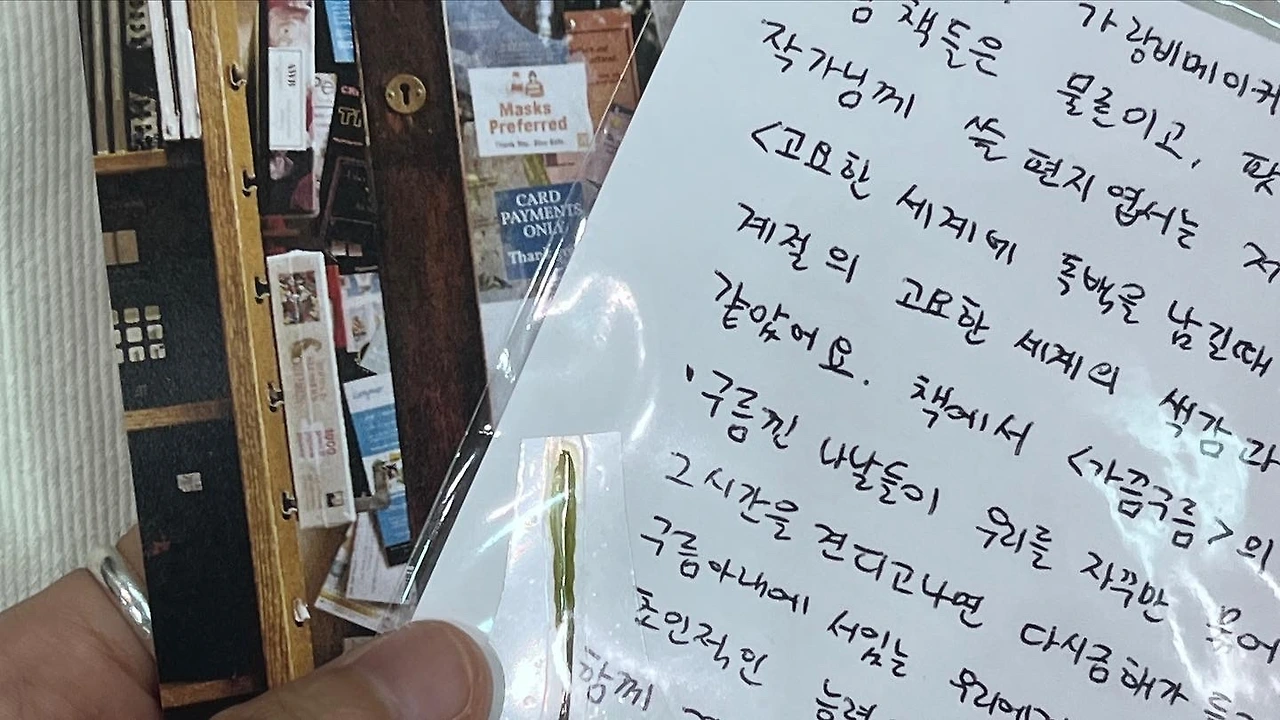 Masks
Preferred
CARD
PAYMENTS
ONLY
가랑비메이커
책들은 물론이고, 팟
작가님께 쓸 편지 엽서는 저
<고요한 세계에 독백을 남길때
계절의 고요한 세계의 색감과
같았어요. 책에서 <가끔구름>의
'구름낀 나날들이 우리를 자꾸만 묶어
그 시간을 견디고나면 다시금 해가
구름아래에 서있는 우리에
초인적인 능력
함께